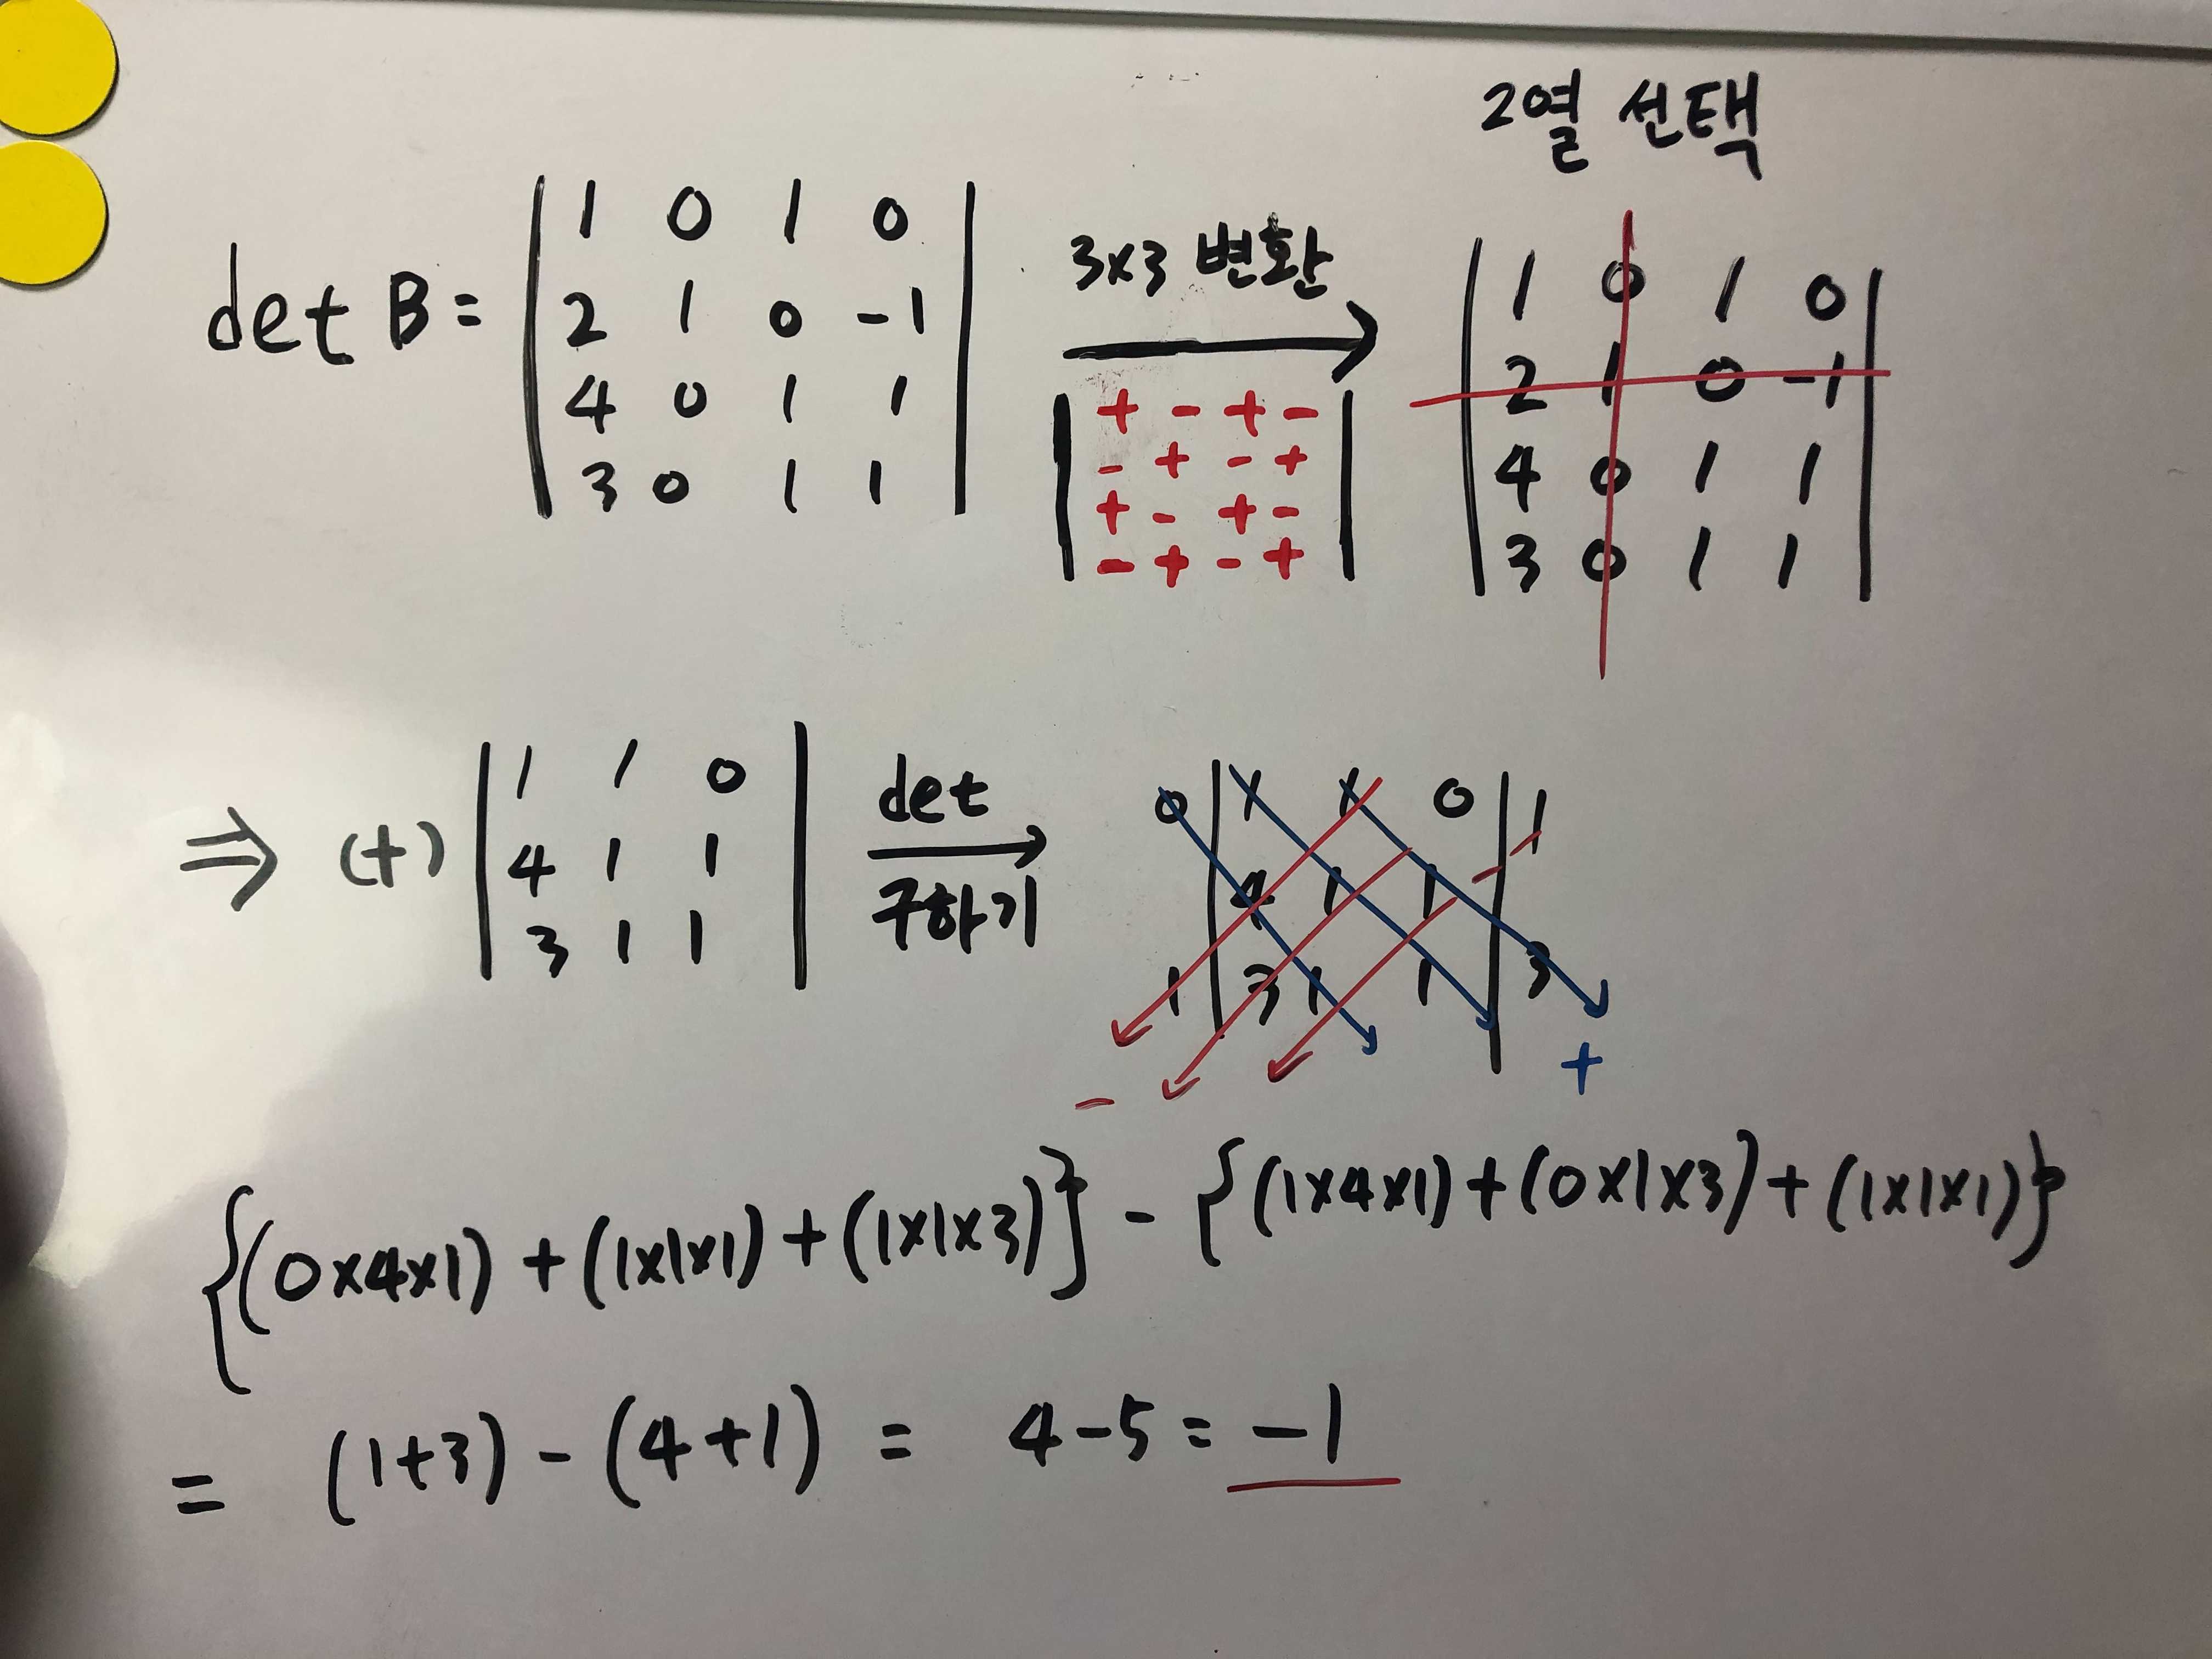 2열 선택
det B = | 1 0 1 0 |
| 2 1 0 -1 |
| 4 0 1 1 |
| 3 0 1 1 |
3×3 변환
| + - + - |
| - + - + |
| + - + - |
| - + - + |
| 1 0 1 0 |
| 2 1 0 -1 |
| 4 0 1 1 |
| 3 0 1 1 |
⇒ (+) | 1 1 0 |
| 4 1 1 |
| 3 1 1 |
det
구하기
0 | 1 1 0 | 1
| 4 1 1 |
1 | 3 1 1 | 3
- +
{(0×4×1) + (1×1×1) + (1×1×3)} - {(1×4×1) + (0×1×3) + (1×1×1)}
= (1+3) - (4+1) = 4-5 = -1